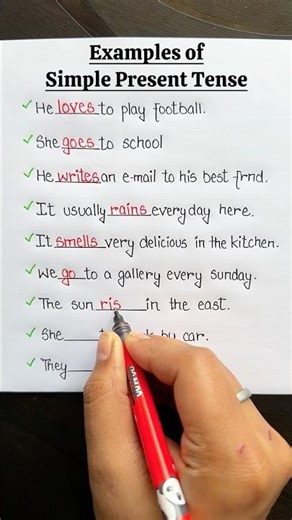 Examples of
Simple Present Tense
✓ He loves to play football.
✓ She goes to school
✓ He writes an e-mail to his best frnd.
✓ It usually rains everyday here.
✓ It smells very delicious in the kitchen.
✓ We go to a gallery every sunday.
✓ The sun ris___in the east.
✓ She____ by car.
✓ They____